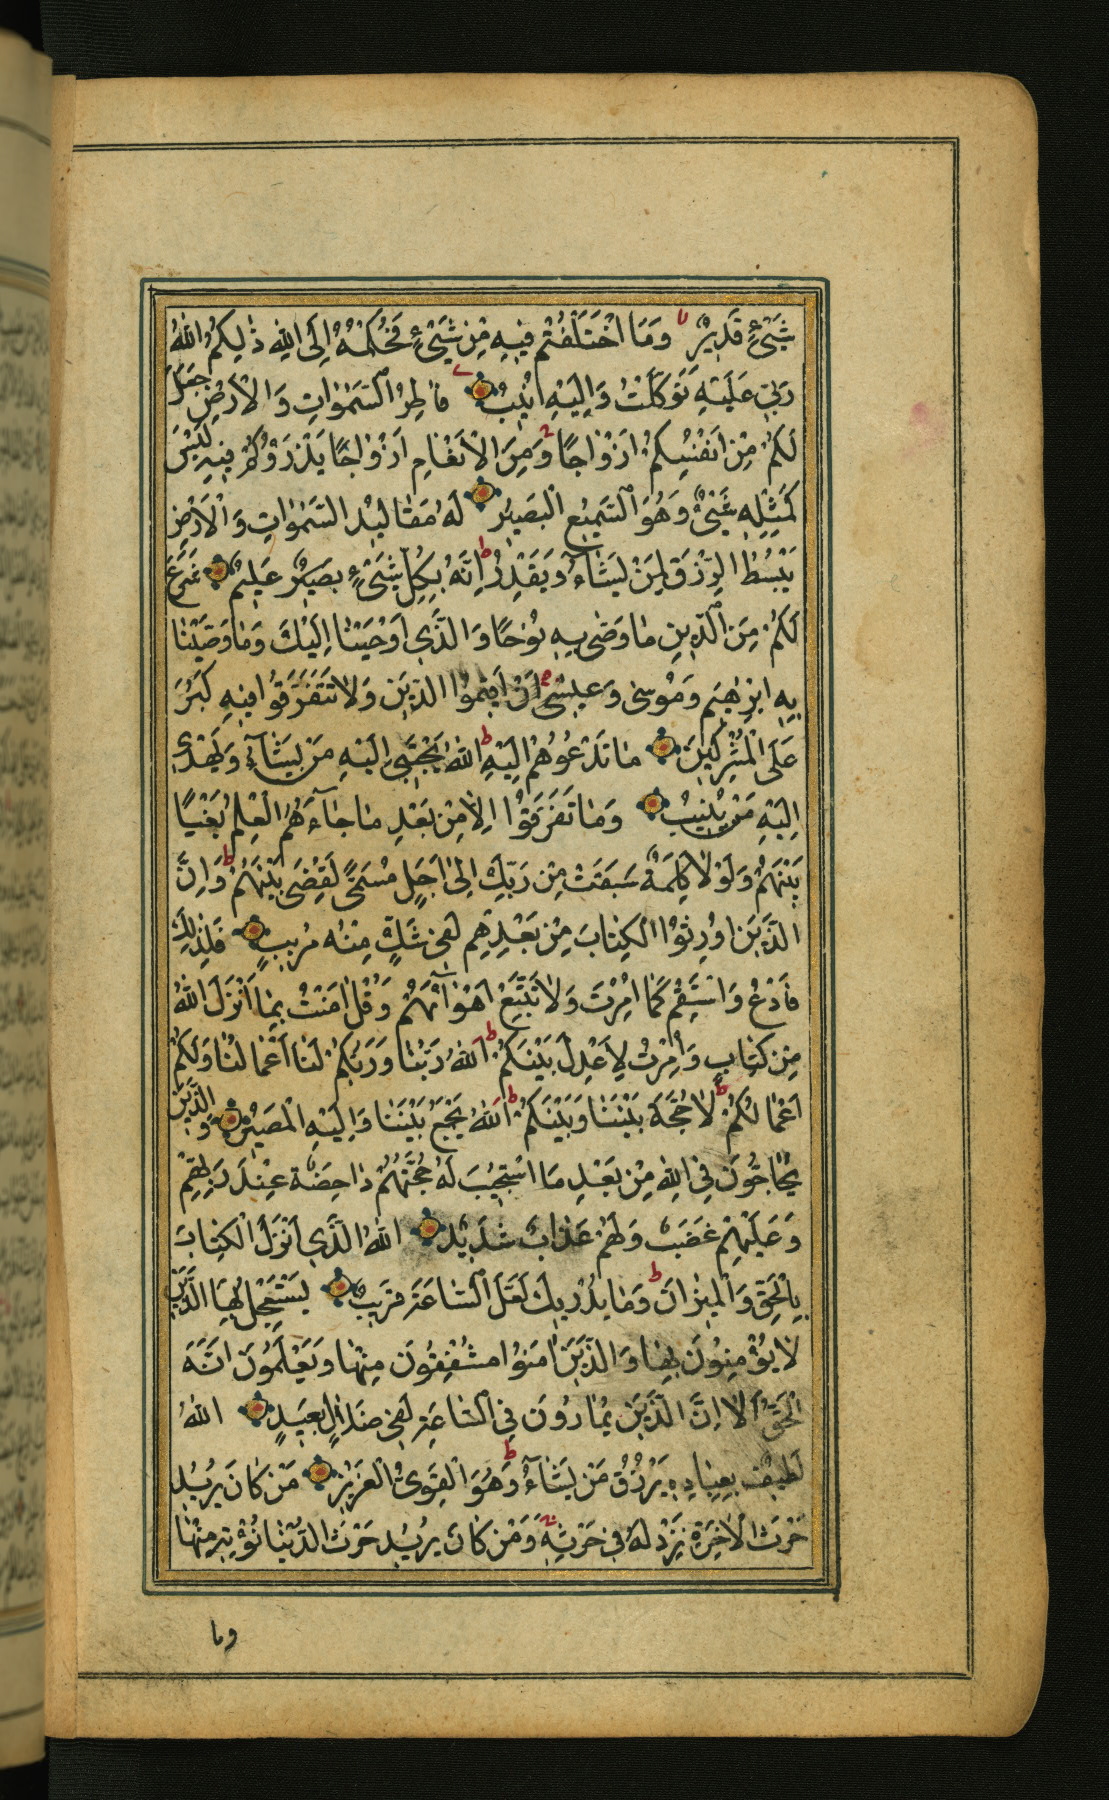 شَيْءٍ قَدِيرٌ وَمَا اخْتَلَفْتُمْ فِيهِ مِنْ شَيْءٍ فَحُكْمُهُ إِلَى اللهِ ذٰلِكُمُ اللهُ
رَبِّي عَلَيْهِ تَوَكَّلْتُ وَإِلَيْهِ أُنِيبُ فَاطِرُ السَّمٰوَاتِ وَالْأَرْضِ جَعَلَ
لَكُمْ مِنْ أَنْفُسِكُمْ أَزْوَاجًا وَمِنَ الْأَنْعَامِ أَزْوَاجًا يَذْرَؤُكُمْ فِيهِ لَيْسَ
كَمِثْلِهِ شَيْءٌ وَهُوَ السَّمِيعُ الْبَصِيرُ لَهُ مَقَالِيدُ السَّمٰوَاتِ وَالْأَرْضِ
يَبْسُطُ الرِّزْقَ لِمَنْ يَشَاءُ وَيَقْدِرُ إِنَّهُ بِكُلِّ شَيْءٍ بَصِيرٌ عَلِيمٌ شَرَعَ
لَكُمْ مِنَ الدِّينِ مَا وَصَّى بِهِ نُوحًا وَالَّذِي أَوْحَيْنَا إِلَيْكَ وَمَا وَصَّيْنَا
بِهِ إِبْرٰهِيمَ وَمُوسَى وَعِيسَى أَنْ أَقِيمُوا الدِّينَ وَلَا تَتَفَرَّقُوا فِيهِ كَبُرَ
عَلَى الْمُشْرِكِينَ مَا تَدْعُوهُمْ إِلَيْهِ اللهُ يَجْتَبِي إِلَيْهِ مَنْ يَشَاءُ وَيَهْدِي
إِلَيْهِ مَنْ يُنِيبُ وَمَا تَفَرَّقُوا إِلَّا مِنْ بَعْدِ مَا جَاءَهُمُ الْعِلْمُ بَغْيًا
بَيْنَهُمْ وَلَوْلَا كَلِمَةٌ سَبَقَتْ مِنْ رَبِّكَ إِلَى أَجَلٍ مُسَمًّى لَقُضِيَ بَيْنَهُمْ وَإِنَّ
الَّذِينَ أُورِثُوا الْكِتَابَ مِنْ بَعْدِهِمْ لَفِي شَكٍّ مِنْهُ مُرِيبٍ فَلِذٰلِكَ
فَادْعُ وَاسْتَقِمْ كَمَا أُمِرْتَ وَلَا تَتَّبِعْ أَهْوَاءَهُمْ وَقُلْ آمَنْتُ بِمَا أَنْزَلَ اللهُ
مِنْ كِتَابٍ وَأُمِرْتُ لِأَعْدِلَ بَيْنَكُمْ اللهُ رَبُّنَا وَرَبُّكُمْ لَنَا أَعْمَالُنَا وَلَكُمْ
أَعْمَالُكُمْ لَا حُجَّةَ بَيْنَنَا وَبَيْنَكُمْ اللهُ يَجْمَعُ بَيْنَنَا وَإِلَيْهِ الْمَصِيرُ وَالَّذِينَ
يُحَاجُّونَ فِي اللهِ مِنْ بَعْدِ مَا اسْتُجِيبَ لَهُ حُجَّتُهُمْ دَاحِضَةٌ عِنْدَ رَبِّهِمْ
وَعَلَيْهِمْ غَضَبٌ وَلَهُمْ عَذَابٌ شَدِيدٌ اللهُ الَّذِي أَنْزَلَ الْكِتَابَ
بِالْحَقِّ وَالْمِيزَانَ وَمَا يُدْرِيكَ لَعَلَّ السَّاعَةَ قَرِيبٌ يَسْتَعْجِلُ بِهَا الَّذِينَ
لَا يُؤْمِنُونَ بِهَا وَالَّذِينَ آمَنُوا مُشْفِقُونَ مِنْهَا وَيَعْلَمُونَ أَنَّهَا
الْحَقُّ أَلَا إِنَّ الَّذِينَ يُمَارُونَ فِي السَّاعَةِ لَفِي ضَلَالٍ بَعِيدٍ اللهُ
لَطِيفٌ بِعِبَادِهِ يَرْزُقُ مَنْ يَشَاءُ وَهُوَ الْقَوِيُّ الْعَزِيزُ مَنْ كَانَ يُرِيدُ
حَرْثَ الْآخِرَةِ نَزِدْ لَهُ فِي حَرْثِهِ وَمَنْ كَانَ يُرِيدُ حَرْثَ الدُّنْيَا نُؤْتِهِ مِنْهَا
وما